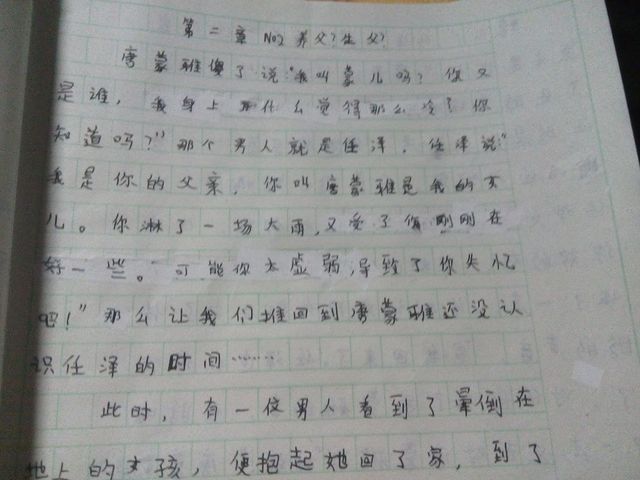 第二章 No2 养父?生父?
唐蒙雅傻了说:"我叫蒙儿吗?你又
是谁,我身上为什么觉得那么冷?你
知道吗?"那个男人就是任泽,任泽说:"
我是你的父亲,你叫唐蒙雅是我的女
儿。你淋了一场大雨,又受了伤刚刚在
好一些。可能你太虚弱,导致了你失忆
吧!"那么让我们推回到唐蒙雅还没认
识任泽的时间……
此时,有一位男人看到了晕倒在
地上的女孩,便抱起她回了家,到了